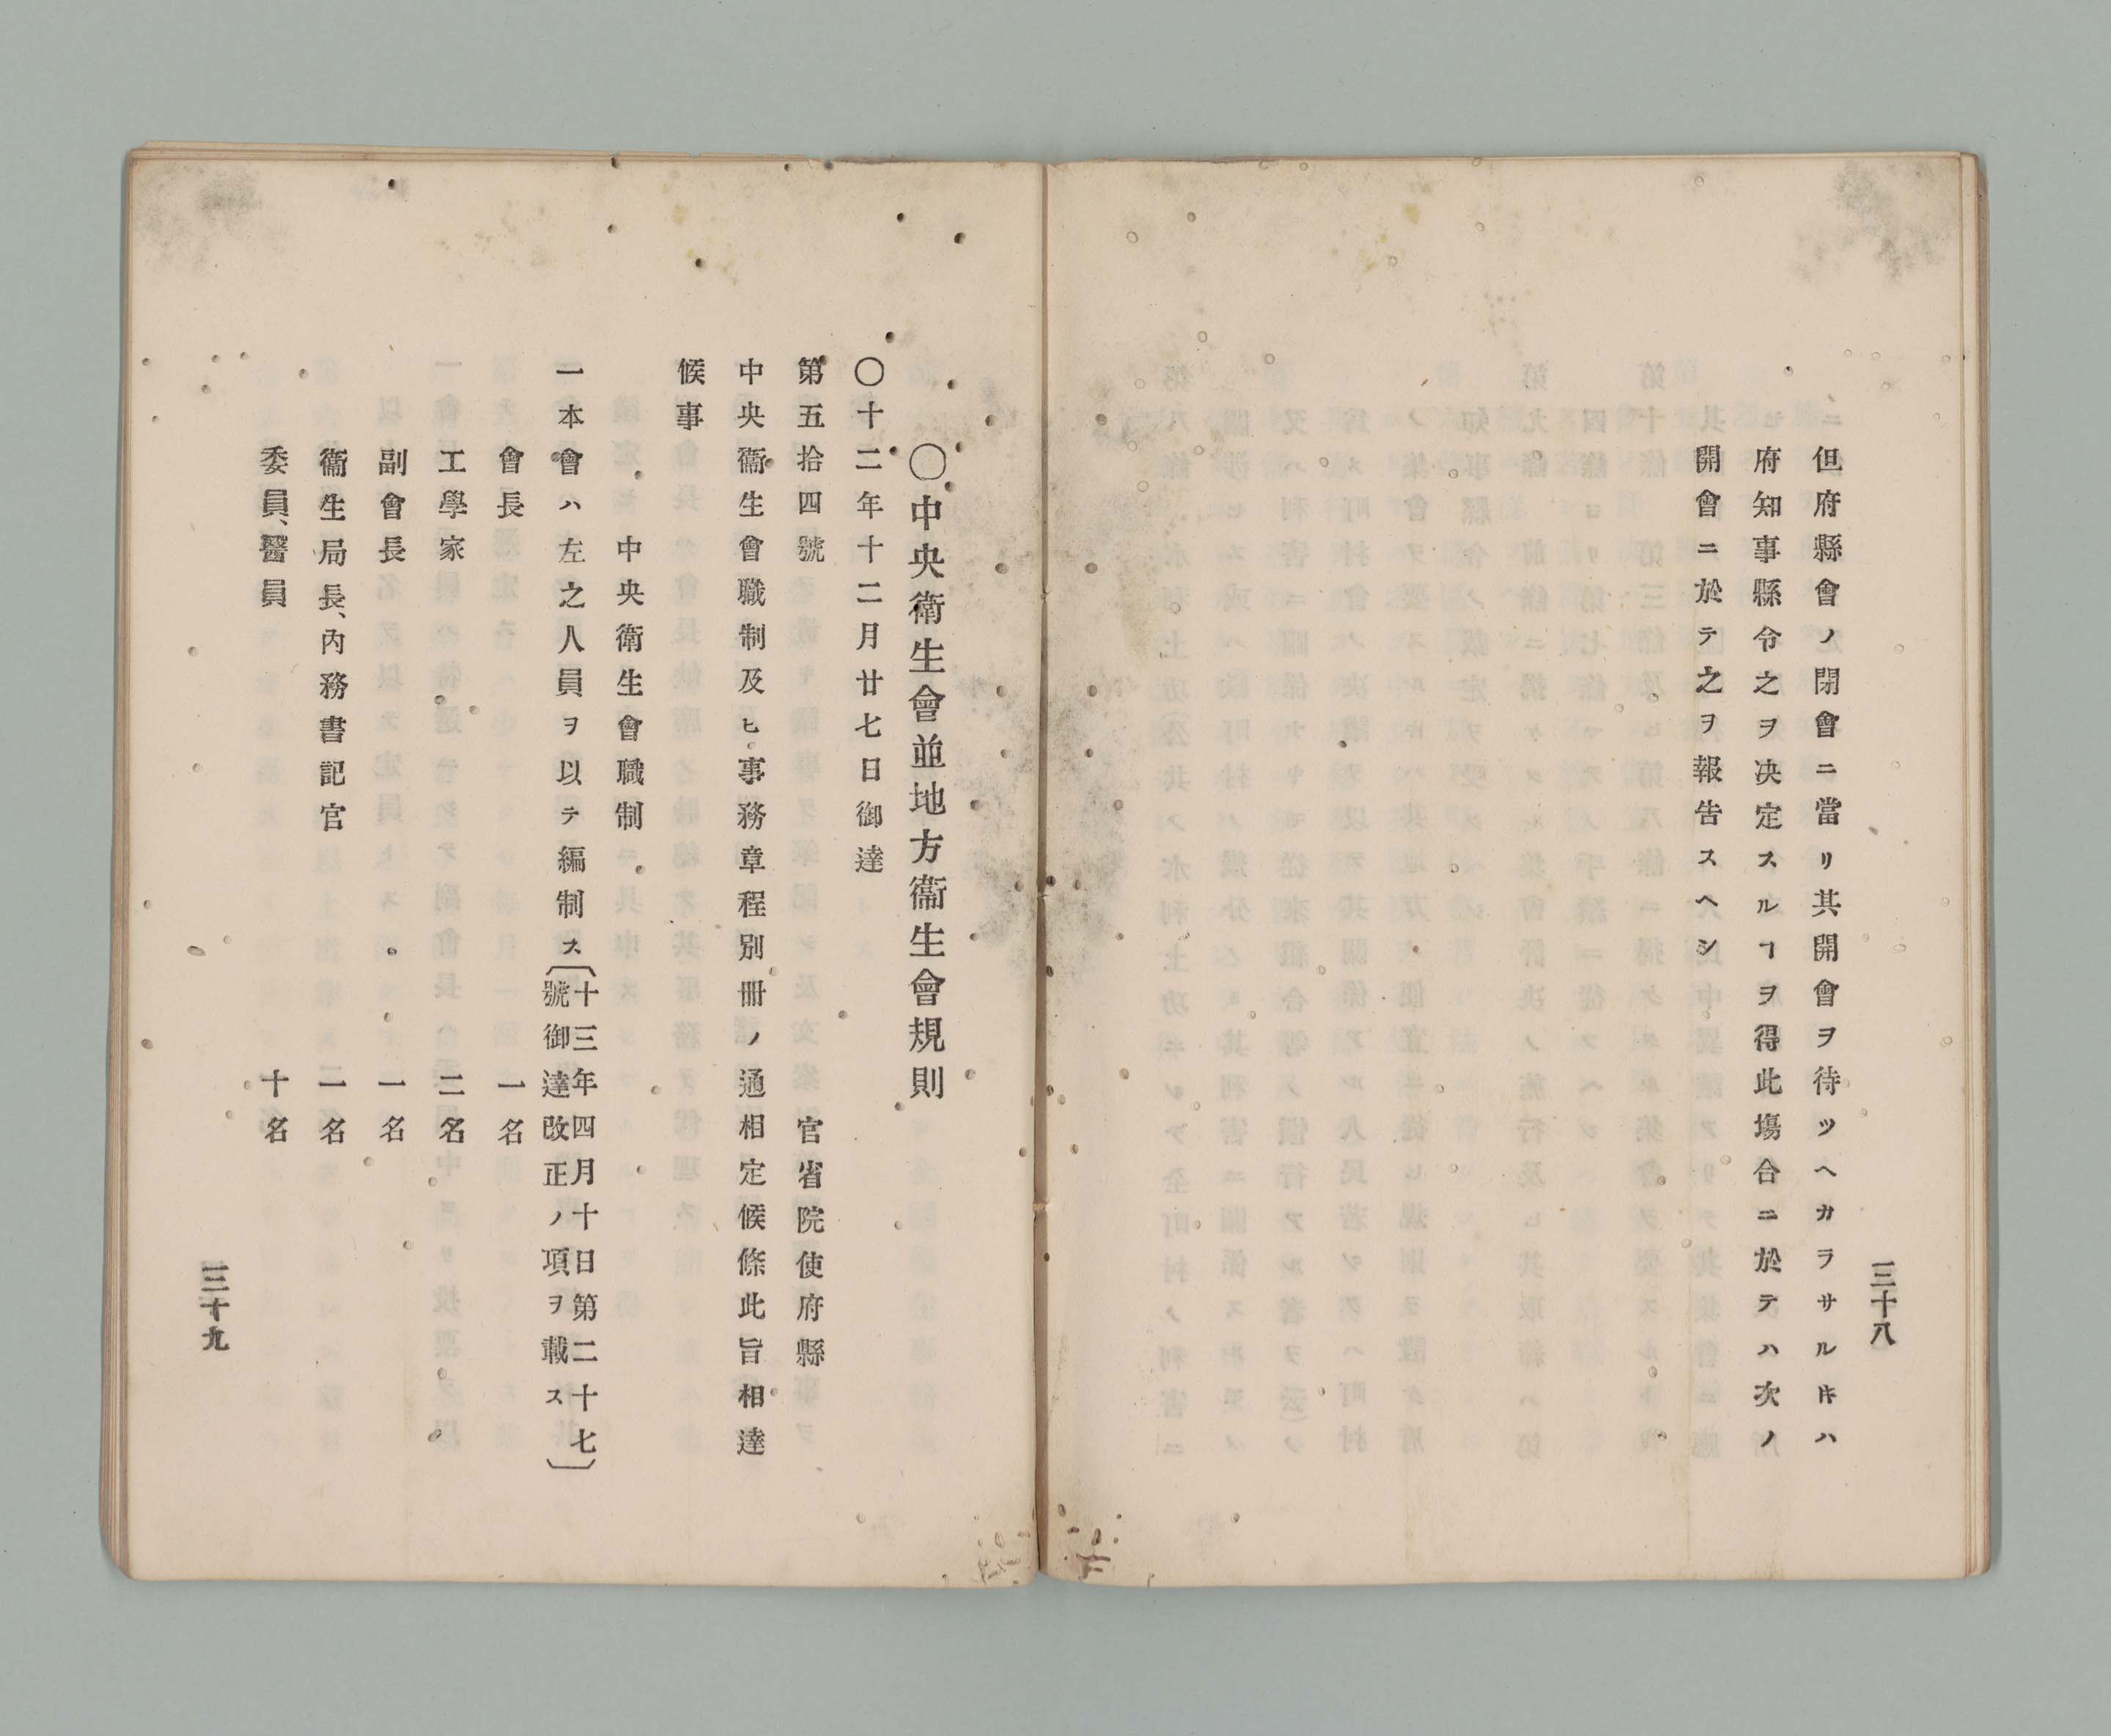 但府縣會ノ閉會ニ當リ其開會ヲ待ツヘカラサルキハ
府知事縣令之ヲ决定スルヿヲ得此塲合ニ於テハ次ノ
開會ニ於テ之ヲ報告スヘシ
三十八
〇中央衛生會並地方衞生會規則
〇十二年十二月廿七日御達
第五拾四號 官省院使府縣
中央衞生會職制及ヒ事務章程別冊ノ通相定候條此旨相達
候事
中央衛生會職制
一本會ハ左之人員ヲ以テ編制ス〔十三年四月十日第二十七
號御達改正ノ項ヲ載ス〕
會長 一名
工學家 二名
副會長 一名
衞生局長、內務書記官 一名
委員、醫員 十名
三十九